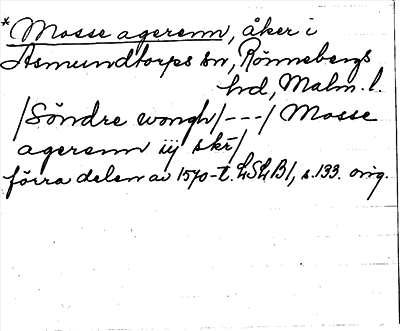 * Mosse agerenn, åker i
Asmundtorps sn, Rönnebergs
hd, Malm. l.
/Söndre wongh/---/ Mosse
agerenn iij skr/
förra delen av 1570-t. LSLB1, s.133. orig.